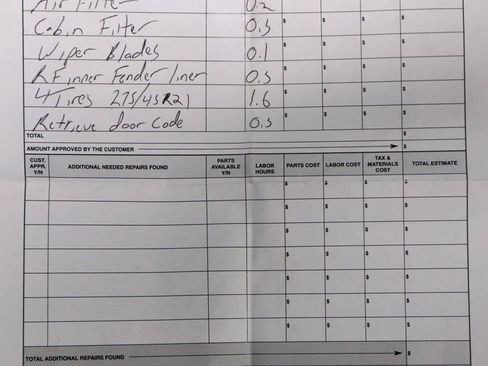 Air Filter 0.2 $
Cabin Filter 0.5 $ $ $ $
Wiper Blades 0.1 $ $ $ $
RF inner Fender liner 0.5 $ $ $ $
4 Tires 275/45R21 1.6 $ $ $ $
Retrieve door code 0.5 $ $ $ $
TOTAL $
AMOUNT APPROVED BY THE CUSTOMER $
CUST. APPR. Y/N ADDITIONAL NEEDED REPAIRS FOUND PARTS AVAILABLE Y/N LABOR HOURS PARTS COST LABOR COST TAX & MATERIALS COST TOTAL ESTIMATE
$ $ $ $
$ $ $ $
$ $ $ $
$ $ $ $
$ $ $ $
$ $ $ $
$ $ $ $
TOTAL ADDITIONAL REPAIRS FOUND $